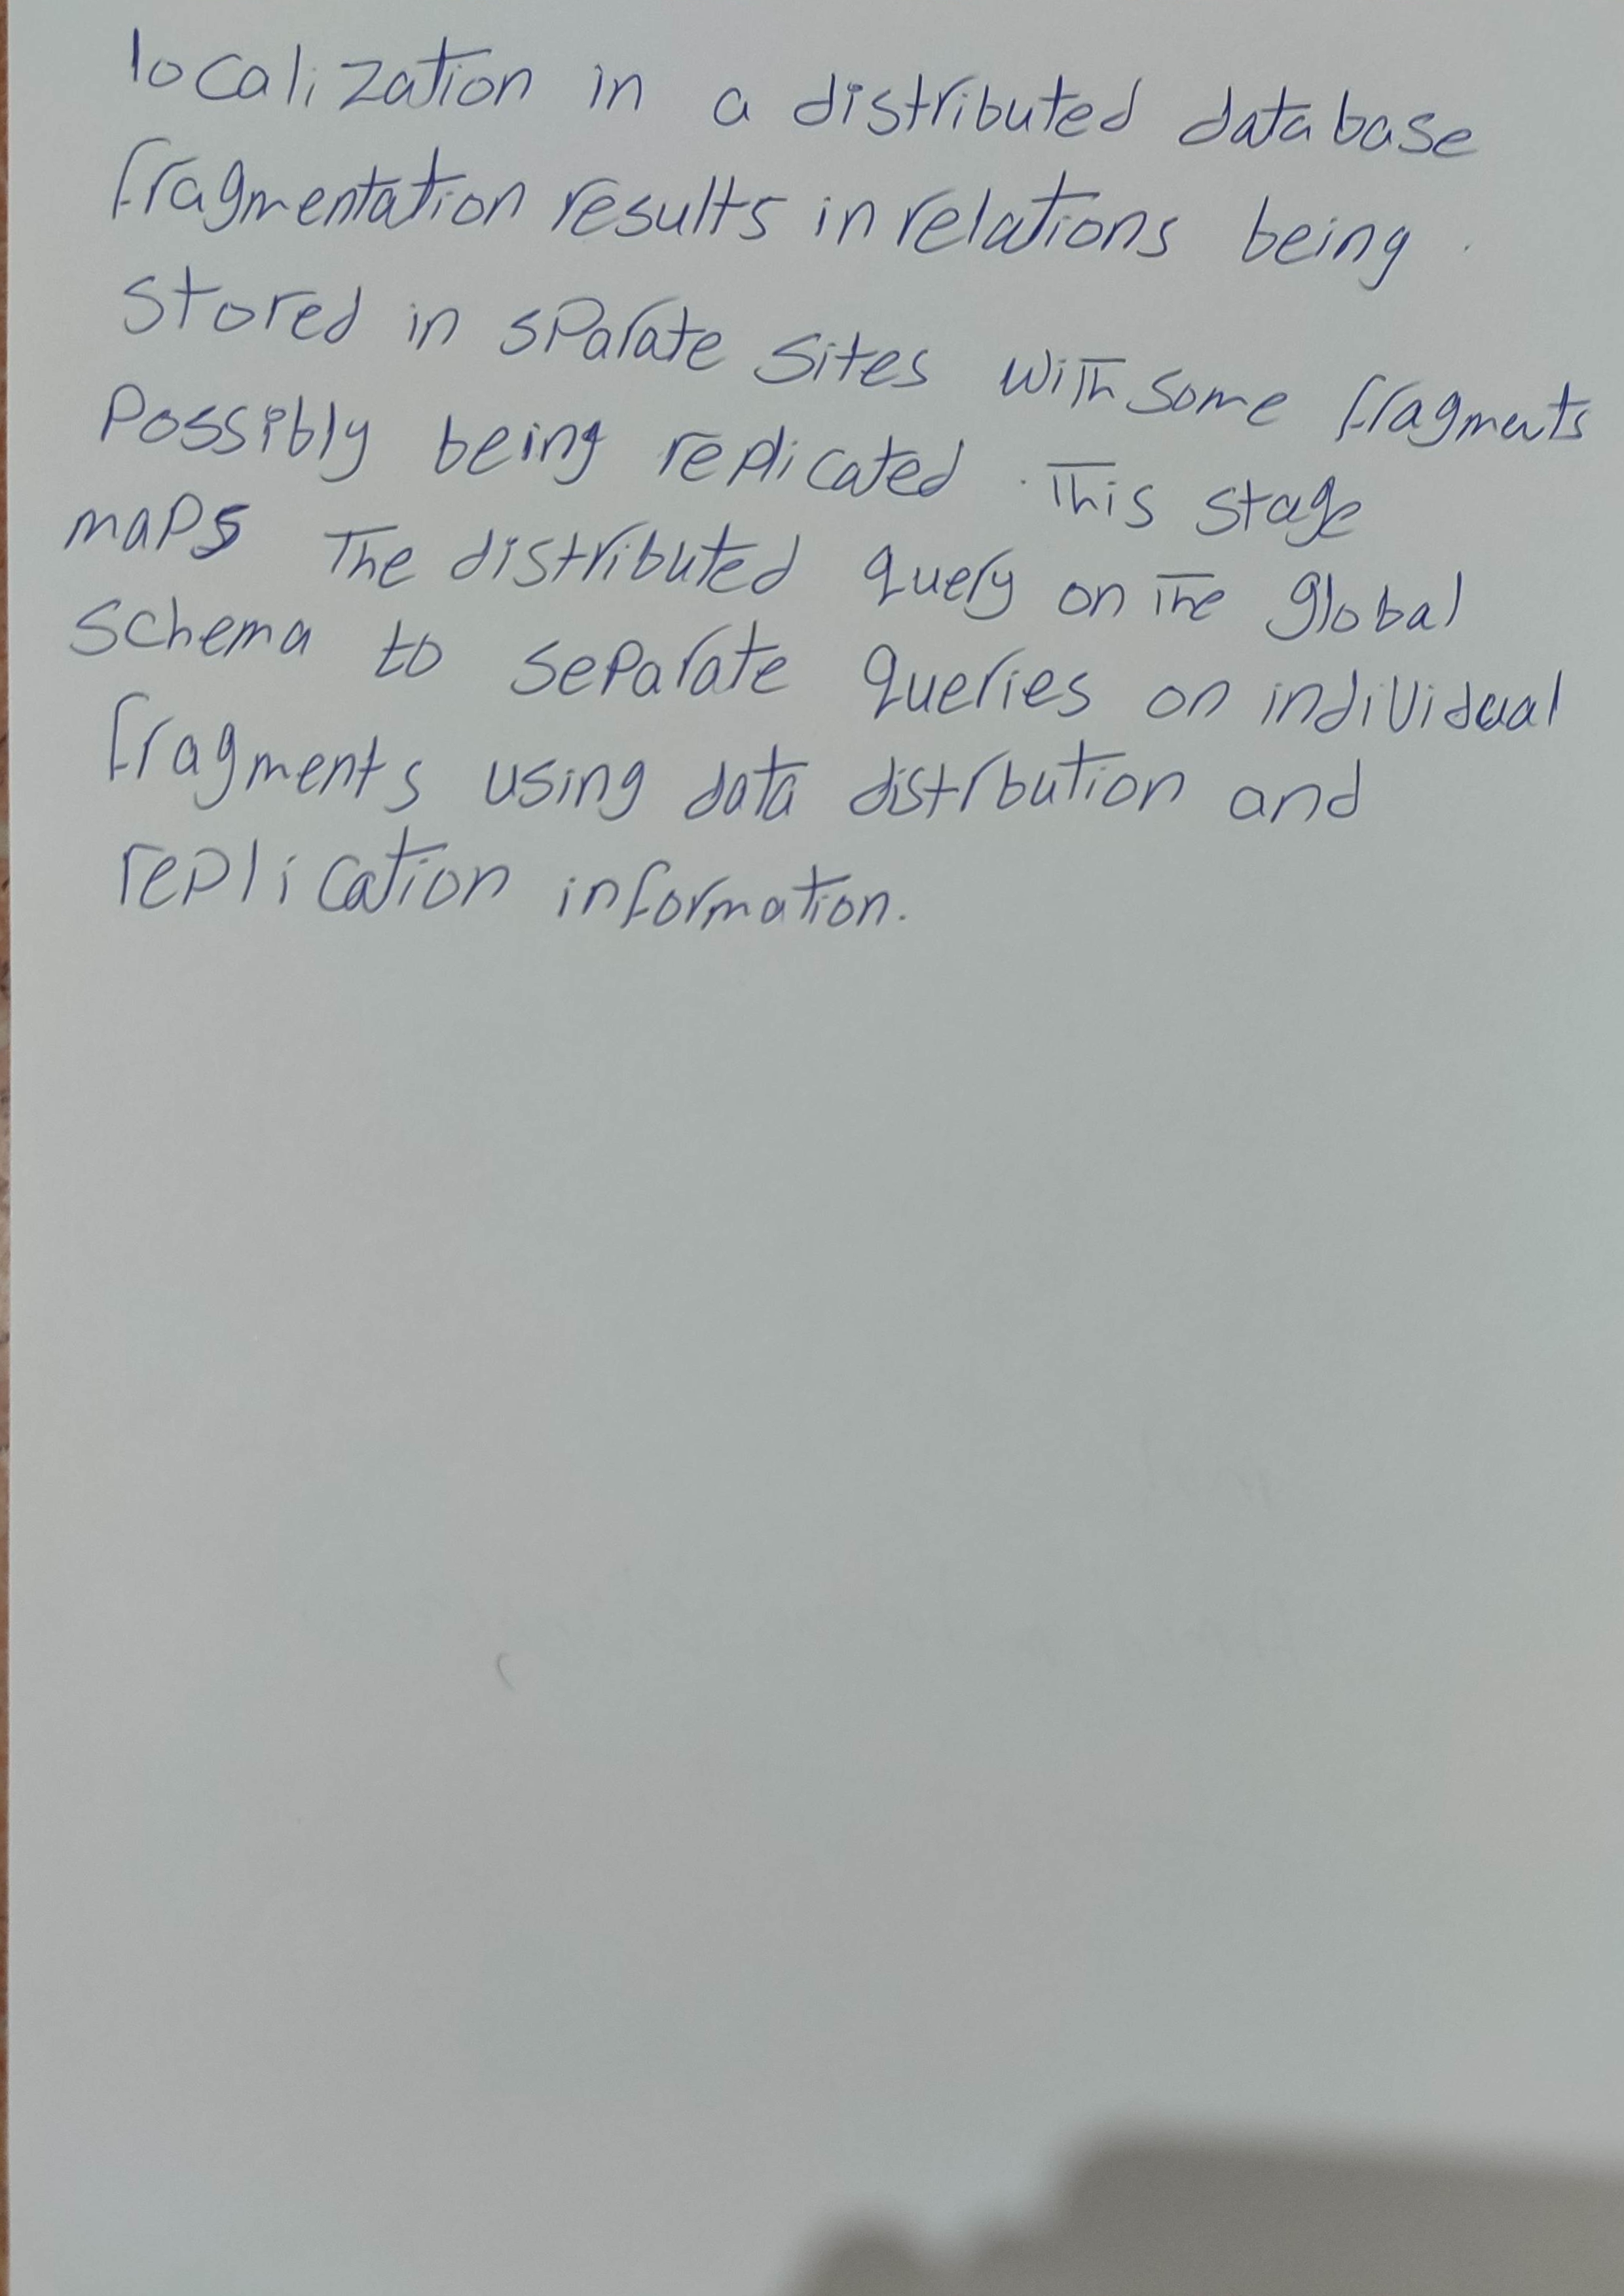 localization in a distributed database
fragmentation results in relations being
stored in sparate sites with some fragments
Possibly being replicated. This stage
maps The distributed query on The global
schema to separate queries on individual
fragments using data distrbution and
replication information.